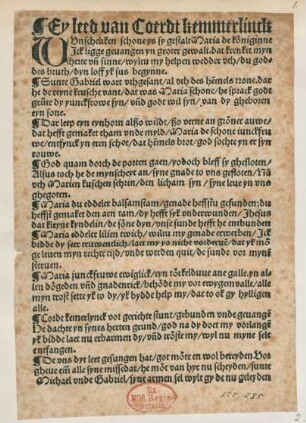 Ey leed van Coerdt kemmerlinck
Wnscheliken schone ys sy gestalt Maria de königinne
Ick ligge geuangen yn groter gewalt. dat krencket myn
herte vñ sinne / wyltu my helpen wedder vth / du godes
des bruth / dyn loff yk sus begynne.
Sunte Gabriel wart vthgesant / al vth des hēmels trone. dat
he de reyne kusche vant / dat was Maria schone / he sprack godt
gröte dy yunckfrowe syn / vñ godt wil syn / van dy gheboren
eyn sone.
Dar leep eyn eynhorn alßo wildt / ßo verne an gröner auwe /
dat hefft gemaket tham vnde myld / Maria de schone iunckfruwe /
eyn teen schot / dat hēmels brot / god sochte yn er syn
vrowe.
God quam dorch de porten gaen / yodoch bleff sy ghesloten /
Alsus toch he de mynscheyt an / syne gnade to vns gestoten /
vth Marien kuschen schrin / den licham syn / syne leue yn vns
ghegoten.
Maria du eddeler balsamstam / genade heffstu gefunden; du
heffst gemaket den arn tam / dy hefft syk vnderwunden / Jhesus
dat kleyne kyndelin / de söne dyn / vns sunde hefft he entbunden
Maria eddeler lilien rwich / woltu my genade erwerben / Je
bidde dy seer truwenclich / laet my yo nicht vorderuē / dat yk möge
leuen myn rechte tijd / vnde werden quit / de sunde vor myne
steruen.
Maria junckfruwe ewiglick / eyn törtelduue ane galle. yn allen
dögeden vñ gnadenrick / behöde my vor ewygem valle / alle
myn trost sette yk to dy / yk bydde help my / dat to ok gy hylligen
alle.
Cordt kemerlynck vor gerichte stunt / gebunden vnde geuangē
He dachte yn synes herten grund / god na dy doet my vorlangē
yk bidde laet nu erbarmen dy / vnd tröste my / wyl nu myne sele
entfangen.
De vns dyt leet gesungen hat / got möte en wol bereyden Vorgheue
em alle syne missedat / he möt van hyr nu scheyden / sunte
Michael vnde Gabriel / syne armen sel wylt gy de nu geleyden
Ex
Bibl. Regia
2